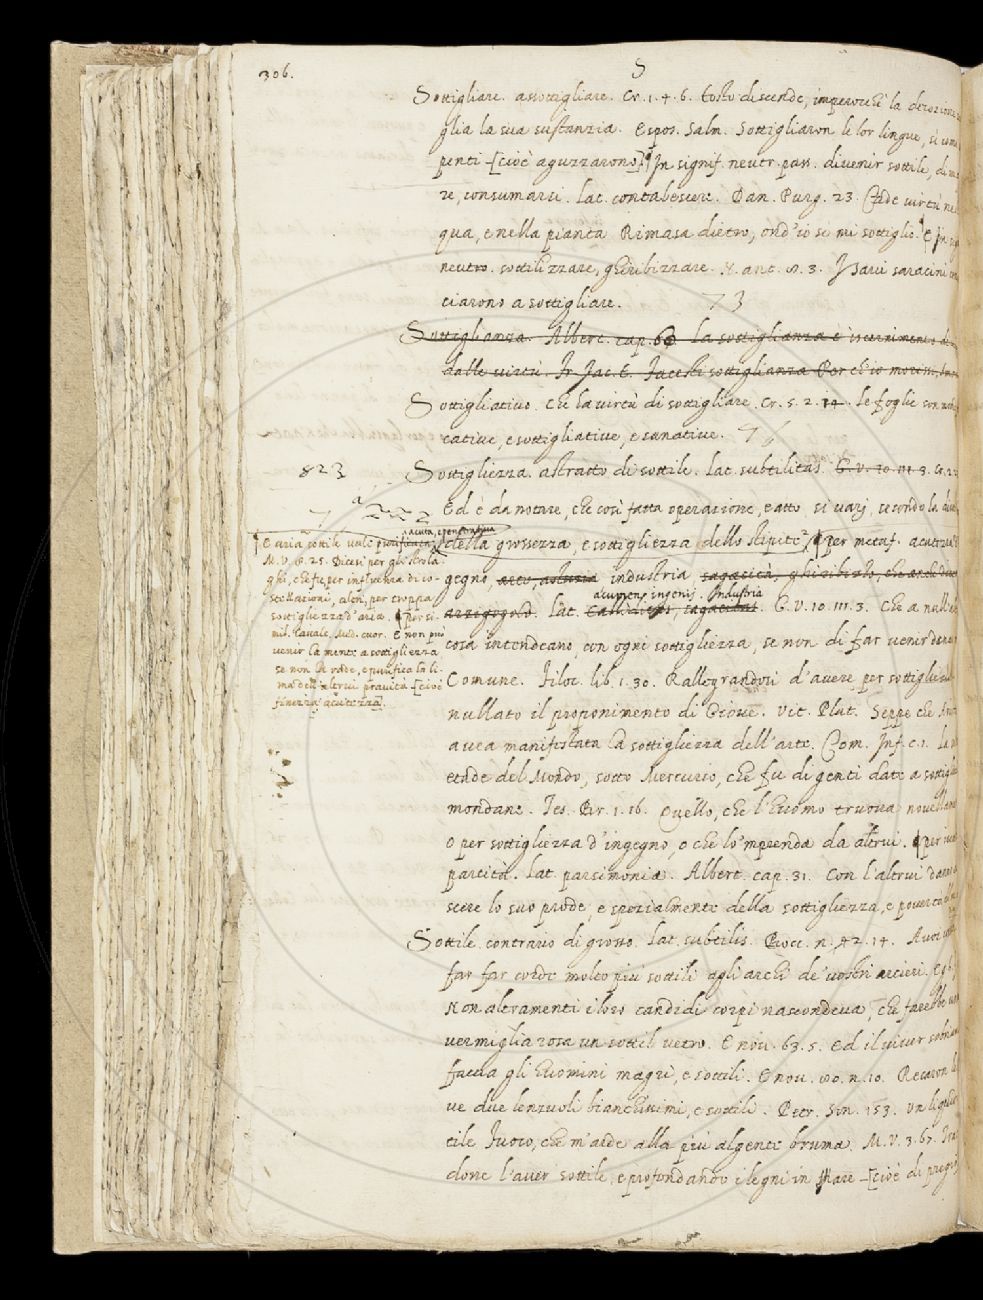 306.
S
Sottigliare. assottigliare. Cr. 1. 4. 6. tosto discende, imperocchè la
glia la sua sustanzia. Espos. Salm. Sottigliaron le lor lingue, sì come
penti [cioè aguzzarono]. ¶ In signif. neutr. pass. divenir sottile,
re, consumarsi. Lat. contabescere. Dan. Purg. 23. Cade virtù
qua, e nella pianta Rimasa dietro, ond'io sì mi sottiglio. E In
neutro. sottilizzare, ghiribizzare. N. ant. n. 3. I savi saracini
ciarono a sottigliare. 73
Sottiglianza. Albert. cap. La sottiglianza è iscernimento
dalle virtù. Fr. Jac. T. sottiglianza Per ch'io
Sottigliativo. Che ha virtù di sottigliare. Cr. 5. 2. 14. Le foglie son
cative, e sottigliative, e sanative. 76
823
Sottigliezza. astratto di sottile. Lat. subtilitas. G. V. 10. 111. 3. Cr. 2
Ed è da notare, che così fatta operazione, e atto, si varj, secondo la
della grossezza, e sottigliezza dello stipite. ¶ Per metaf.
gegno, arte, astuzia industria, sagacità, ghiribizzo, che anche
acumen ingenij. Industria
arzigogolo. Lat. sagacitas. G. V. 10. 111. 3. Che a
cosa intendeano, con ogni sottigliezza, se non di far venir
Comune. Filoc. lib. 1. 30. Rallegrandosi d'avere per
nullato il proponimento di Giove. Vit. Plut. Seppe che
avea manifestata la sottigliezza dell'arte. Com. Inf. c. 1. La
etade del Mondo, sotto Mercurio, che fu di genti date a
mondane. Tes. Br. 1. 16. Quello, che l'huomo truova
o per sottigliezza d'ingegno, o che lo 'mprenda da altrui. ¶ per
parcità. Lat. parsimonia. Albert. cap. 31. Con l'altrui
scere lo suo prode, e spezialmente della sottigliezza, e
Sottile. contrario di grosso. Lat. subtilis. Bocc. n. 42. 14. A voi
far far corde molto più sottili agli archi de' vostri arcieri. E
Non altramenti i loro candidi corpi nascondeva, che farebbe
vermiglia rosa un sottil vetro. E nov. 63. 5. Ed il viver
faccia gli huomini magri, e sottili. E nov. 80. n. 10. Recaron
ve due lenzuoli bianchissimi, e sottili. Petr. Son. 153. Un
tile fuoco, che m'arde alla più algente bruma. M. V. 3. 67.
done l'aver sottile, e profondando i legni in Mare [cioè di
acuta, e penetrativa
E aria sottile vale purificata
M. V. 8. 25. Dicesi per gli strola
ghi, che fu per influenza di co-
stellazioni, altri, per troppa
sottigliezza d'aria. ¶ per si-
mil. Cavalc. Med. cuor. E non può
venir la mente a sottigliezza
se non la rade, e purifica la li-
ma dell'altrui pravità [cioè
finezza, acutezza].